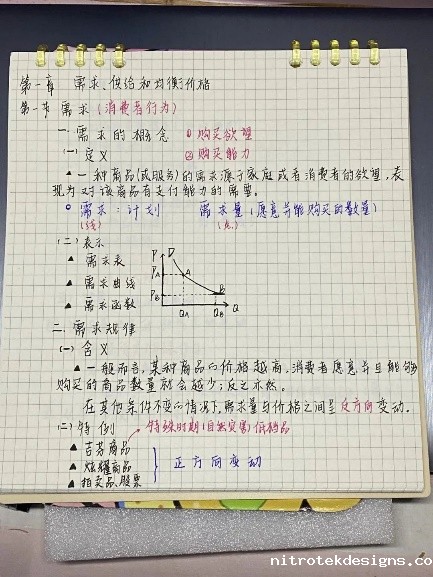 第一章 需求、供给和均衡价格
第一节 需求(消费者行为)
一、需求的概念 ①购买欲望
(一)定义 ②购买能力
▲一种商品(或服务)的需求源于家庭或者消费者的欲望,表
现为对该商品有支付能力的需要。
○需求:计划 需求量(愿意并能购买的数量)
(线) (点)
(二)表示
▲需求表
▲需求曲线
▲需求函数
P D
PA A
PB B
QA QB Q
二、需求规律
(一)含义
▲一般而言,某种商品的价格越高,消费者愿意并且能够
购买的商品数量就会越少;反之亦然。
在其他条件不变的情况下,需求量与价格之间呈反方向变动。
(二)特例 特殊时期(自然灾害)低档品
▲吉芬商品
▲炫耀商品 正方向变动
▲拍卖品、股票
nitrotekdesigns.co